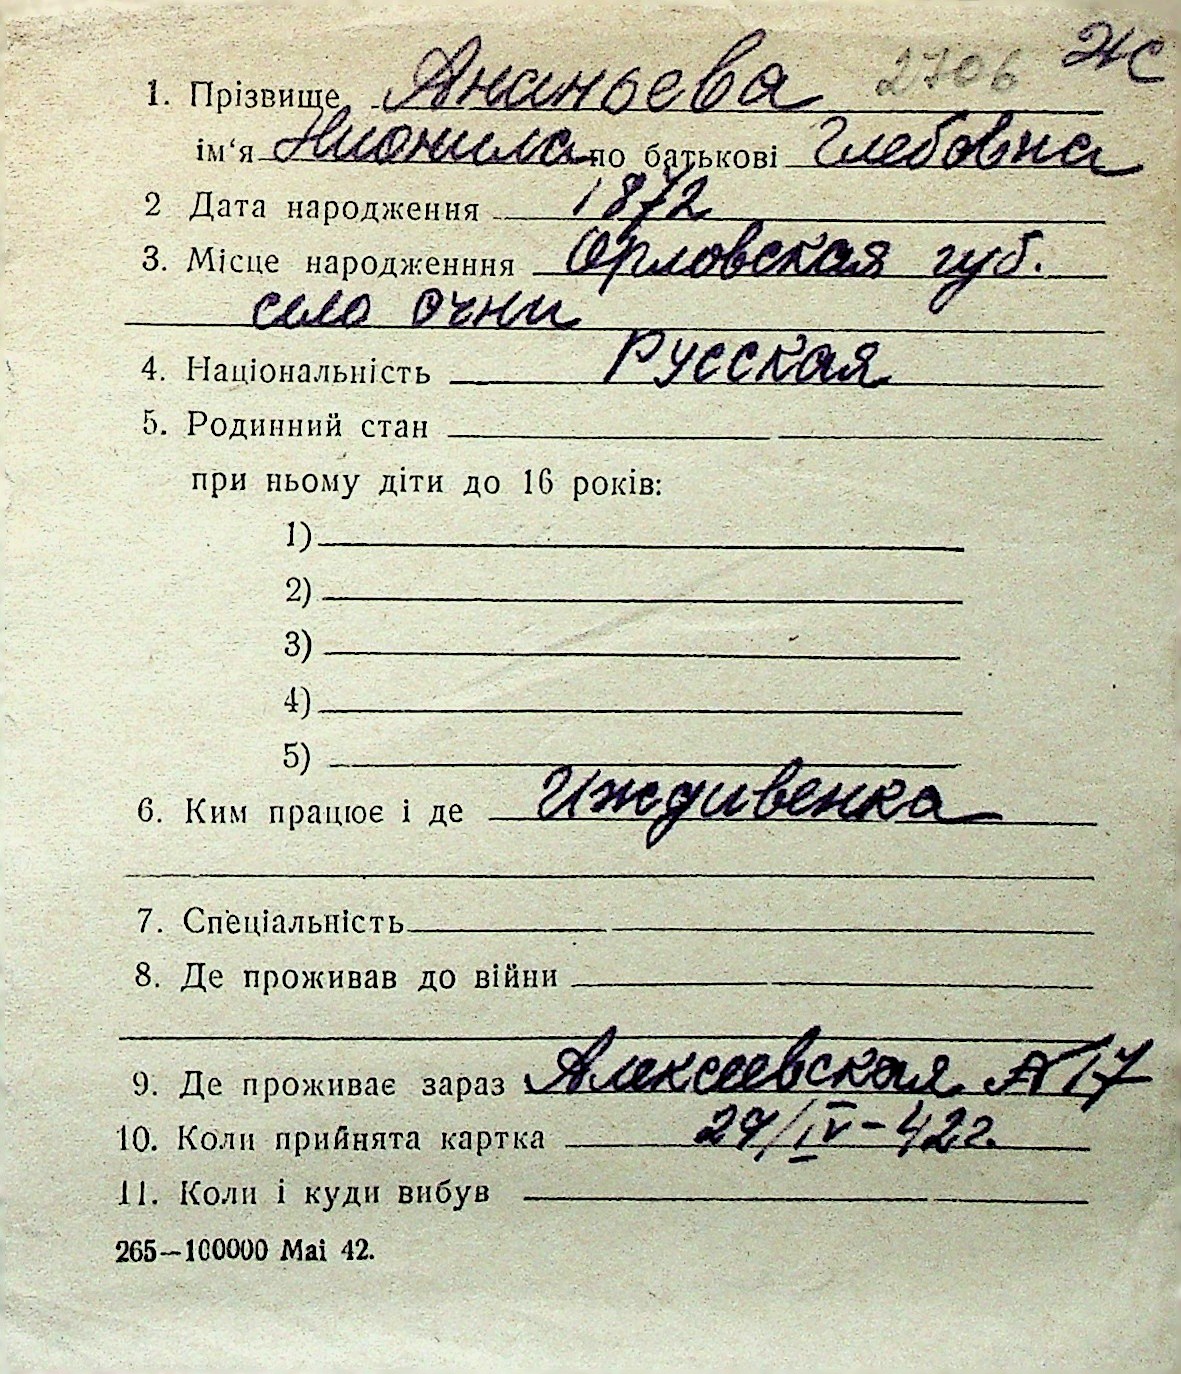 2706 Ж
1. Прізвище Ананьева
ім'я Нионила по батькові Глебовна
2 Дата народження 1872
3. Місце народженння Орловская губ.
село Очни
4. Національність Русская
5. Родинний стан
при ньому діти до 16 років:
1)
2)
3)
4)
5)
6. Ким працює і де Иждивенка
7. Спеціальність
8. Де проживав до війни
9. Де проживає зараз Алексеевская № 17
10. Коли прийнята картка 29/IV-42 г.
11. Коли і куди вибув
265—100000 Mai 42.